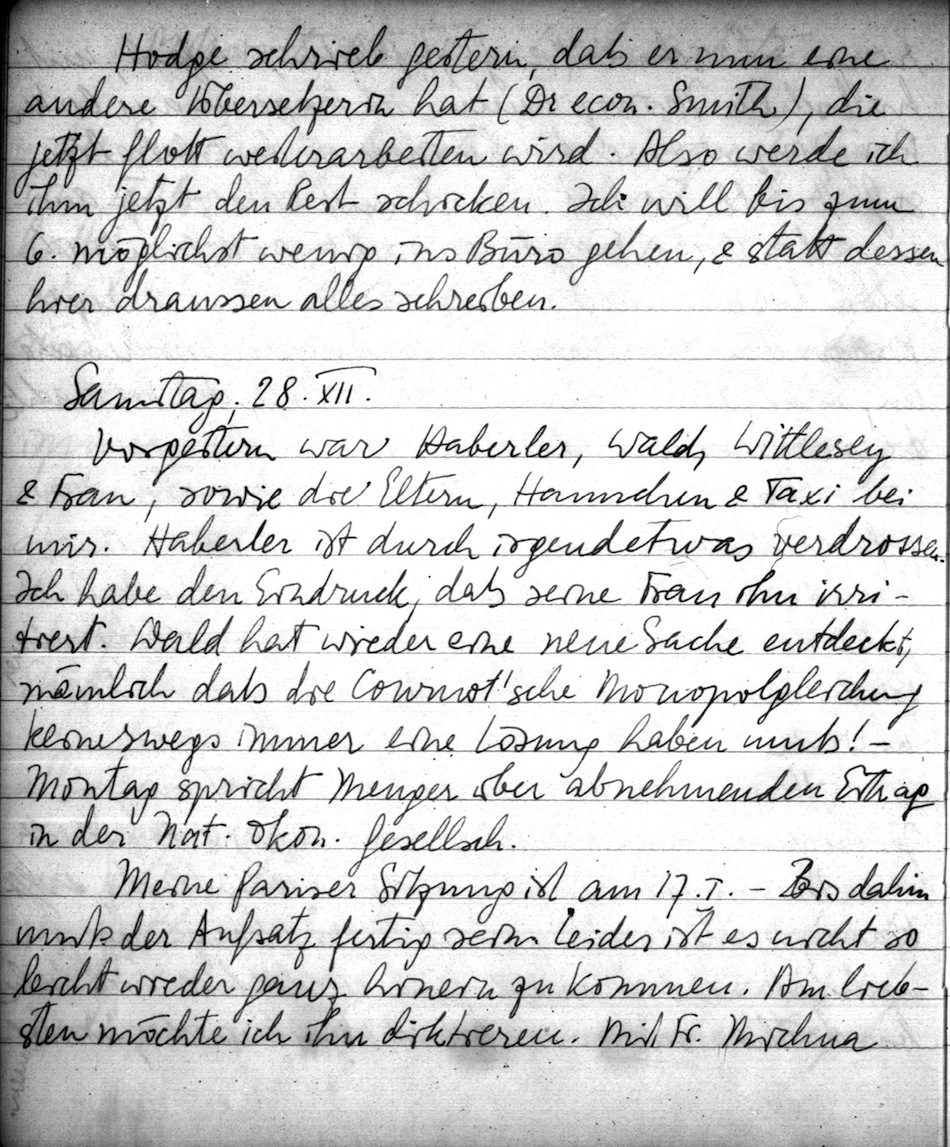 Hodge schrieb gestern, daß er nun eine
andere Übersetzerin hat (Dr econ. Smith), die
jetzt flott weiterarbeiten wird. Also werde ich
ihm jetzt den Rest schicken. Ich will bis zum
6. möglichst wenig ins Büro gehen, & statt dessen
hier draussen alles schreiben.
Samstag, 28. XII.
Vorgestern war Haberler, Wald, Wittlesey
& Frau, sowie die Eltern, Hannchen & Taxi bei
mir. Haberler ist durch irgendetwas verdrossen.
Ich habe den Eindruck, daß seine Frau ihn irri-
tiert. Wald hat wieder eine neue Sache entdeckt,
nämlich daß die Cournot'sche Monopolgleichung
keineswegs immer eine Lösung haben muß! –
Montag spricht Menger über abnehmenden Ertrag
in der Nat. ökon. Gesellsch.
Meine Pariser Sitzung ist am 17.I. – Bis dahin
muß der Aufsatz fertig sein. Leider ist es nicht so
leicht wieder ganz hinein zu kommen. Am lieb-
sten möchte ich ihn diktieren. Mit Fr. Michna